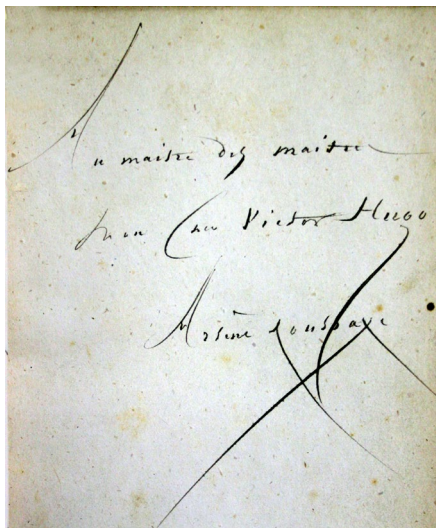 Au maitre des maitres
mon cher Victor Hugo
Arsène Houssaye